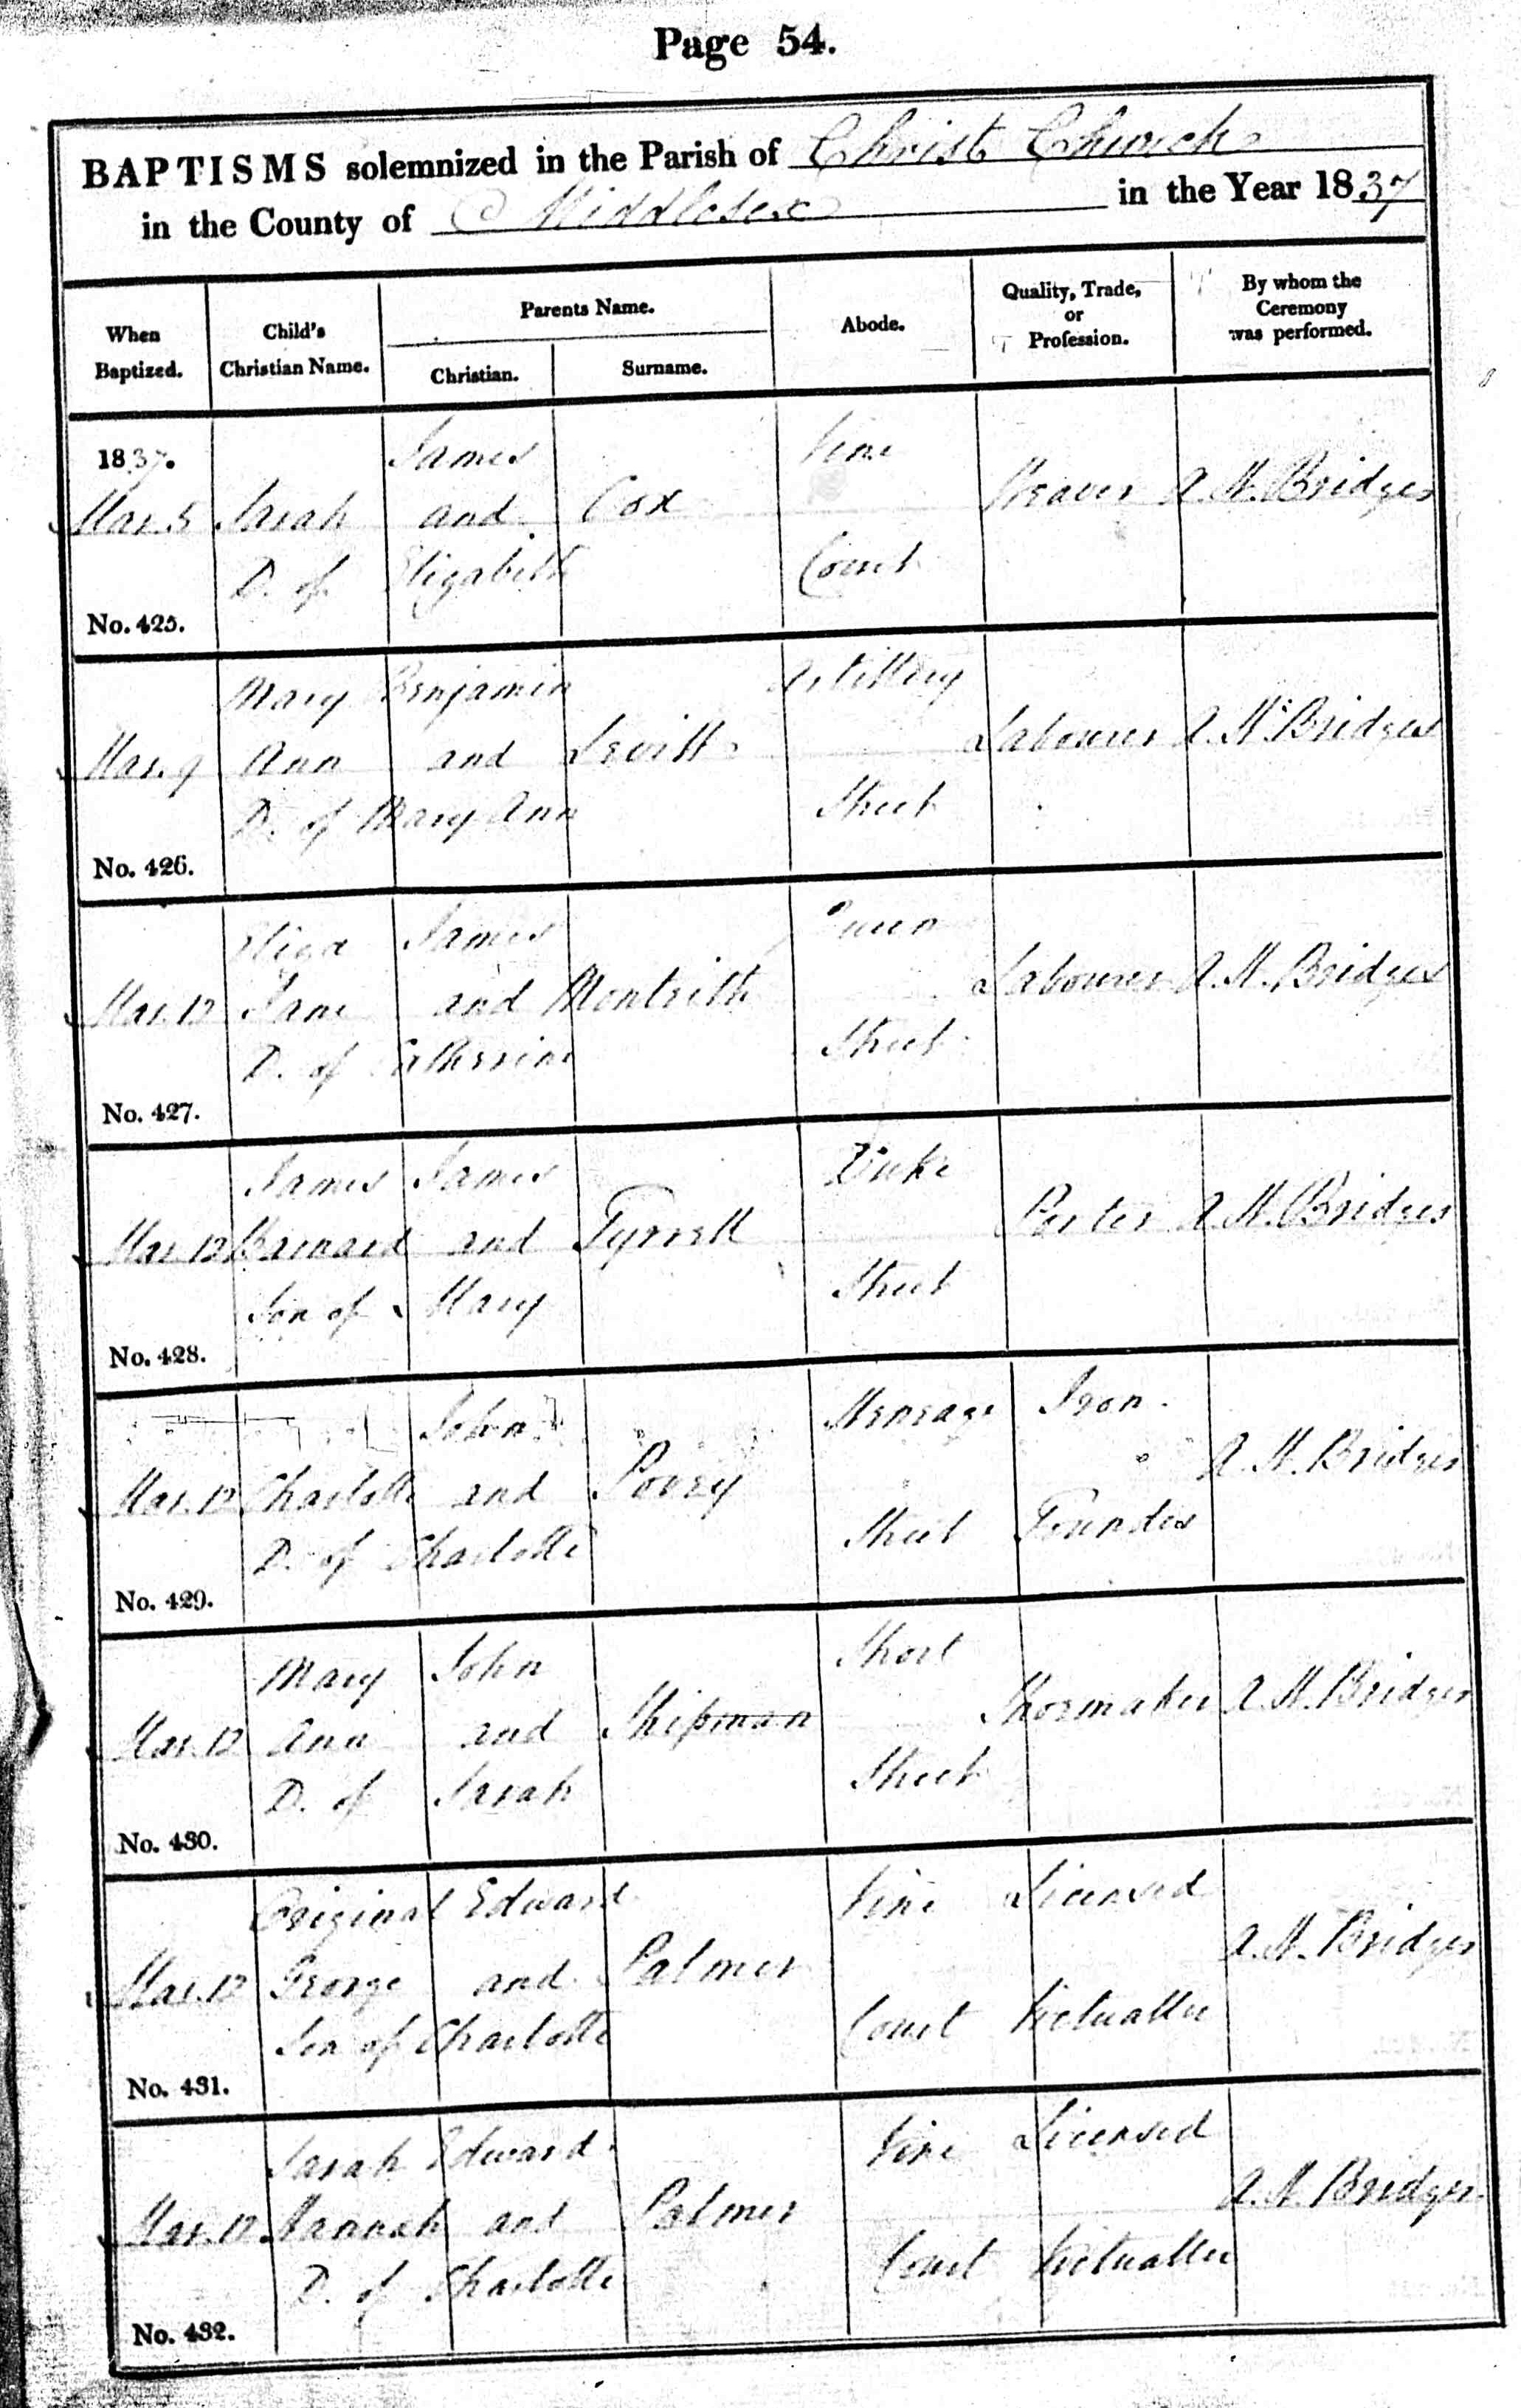 Page 54.
BAPTISMS solemnized in the Parish of Christ Church
in the County of Middlesex in the Year 1837
When Baptized.
Child's Christian Name.
Parents Name.
Christian.
Surname.
Abode.
Quality, Trade, or Profession.
By whom the Ceremony was performed.
James Vine
1837.
Mar. 5 Sarah and Cox Weaver A. H. Bridges
D. of Elizabeth Court
No. 425.
Mary Benjamin Artillery
Mar. 9 Ann and Levitt Labourer A. H. Bridges
D. of Mary Ann Street
No. 426.
Eliza James Queen
Mar. 12 Jane and Montrith Labourer A. H. Bridges
D. of Catherine Street
No. 427.
James James Duke
Mar. 12 and Tyrrell Porter A. H. Bridges
Son of Mary Street
No. 428.
John Iron
Mar. 12 Charlotte and Povey A. H. Bridges
D. of Charlotte Street Founder
No. 429.
Mary John Short
Mar. 12 Ann and Shipman Shoemaker A. H. Bridges
D. of Sarah Street
No. 430.
Original Edward Vine Licensed
Mar. 12 George and Palmer A. H. Bridges
Son of Charlotte Court Victualler
No. 431.
Sarah Edward Vine Licensed
Mar. 12 Hannah and Palmer A. H. Bridges
D. of Charlotte Court Victualler
No. 432.